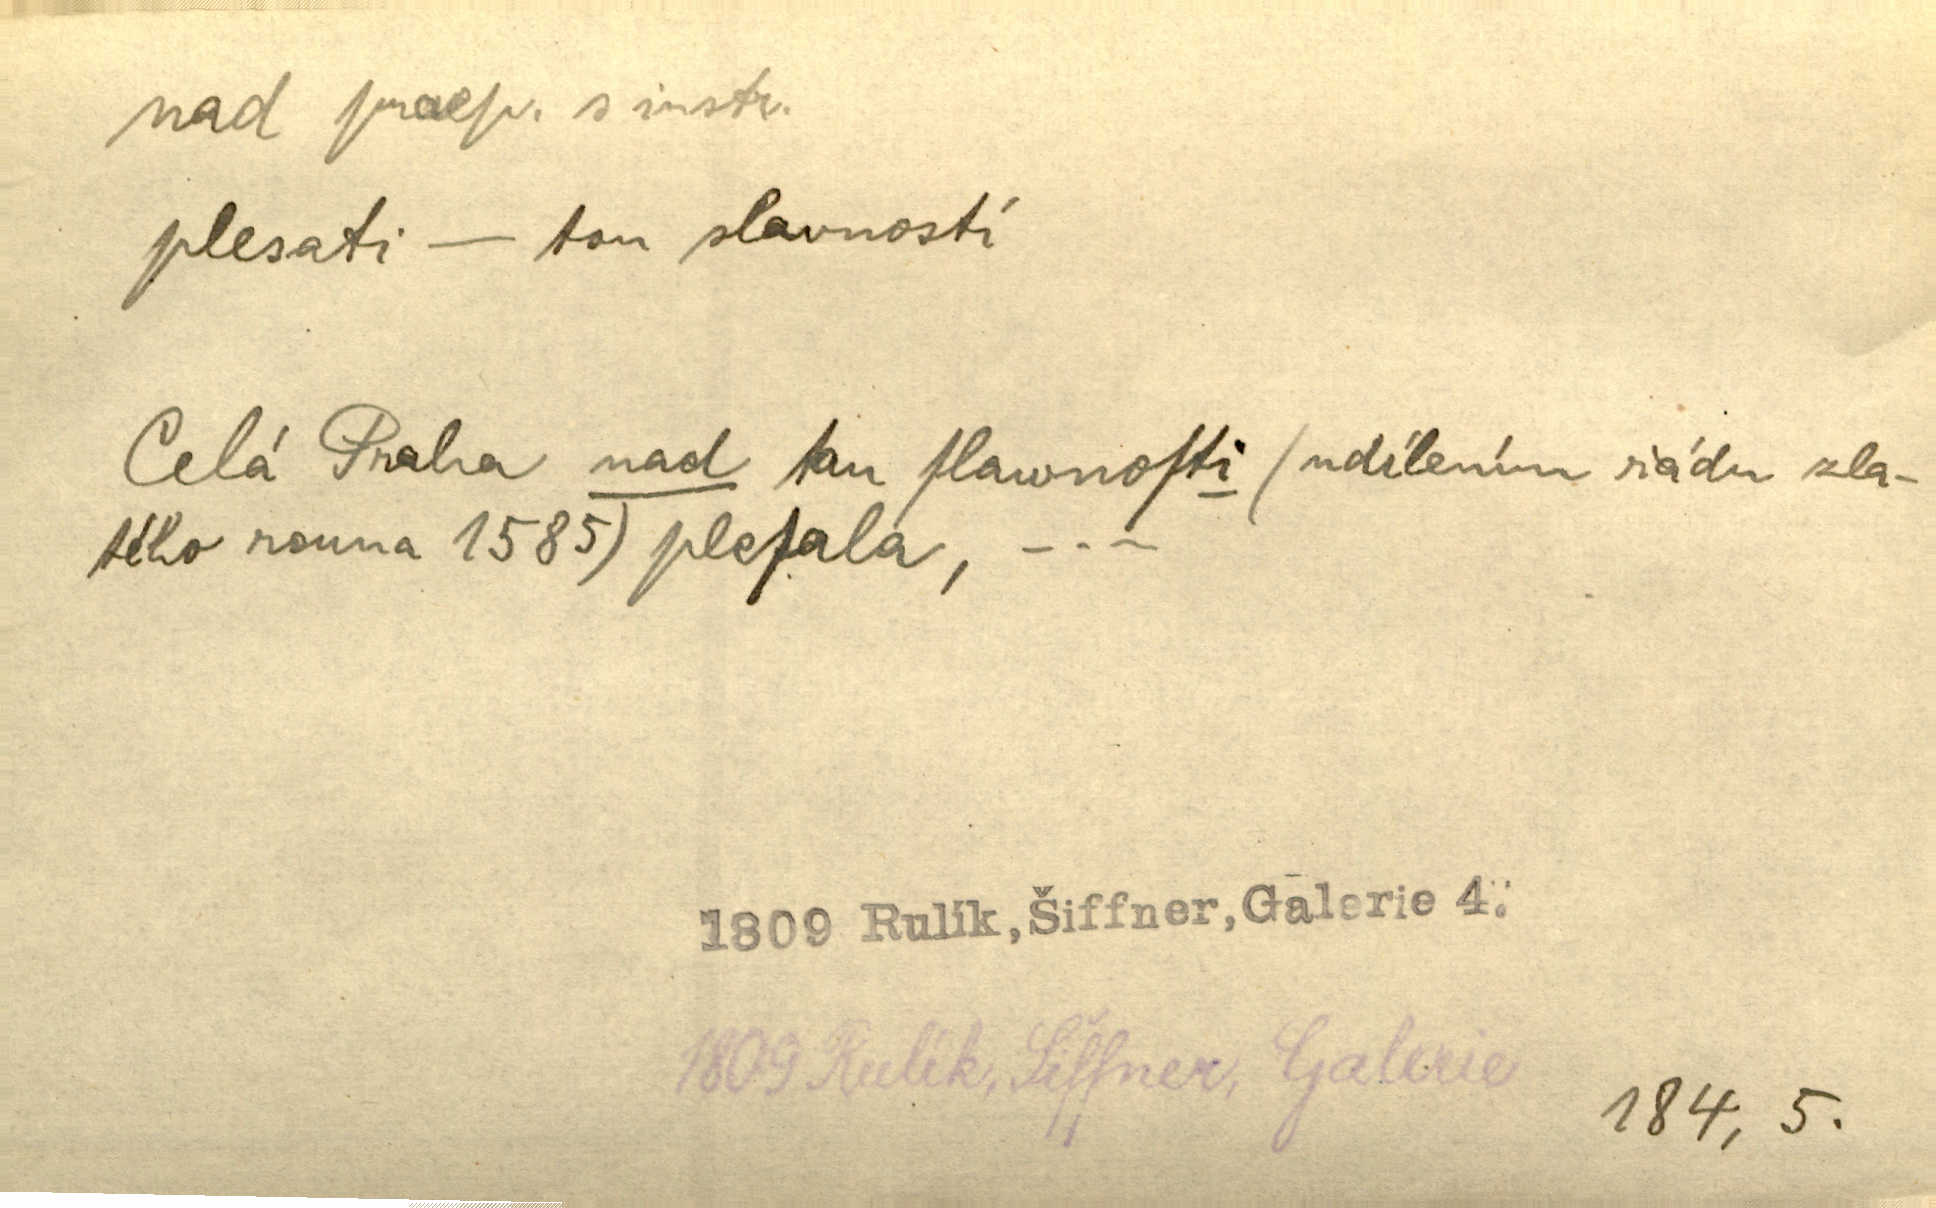 nad praep. s instr.
plesati — tou slavností
Celá Praha nad tau ſlawnoſti (udílením řádu zla-
tého rouna 1585) pleſala, -.-
1809 Rulík, Šiffner, Galerie 4.
1809 Rulík, Šiffner, Galerie
184, 5.